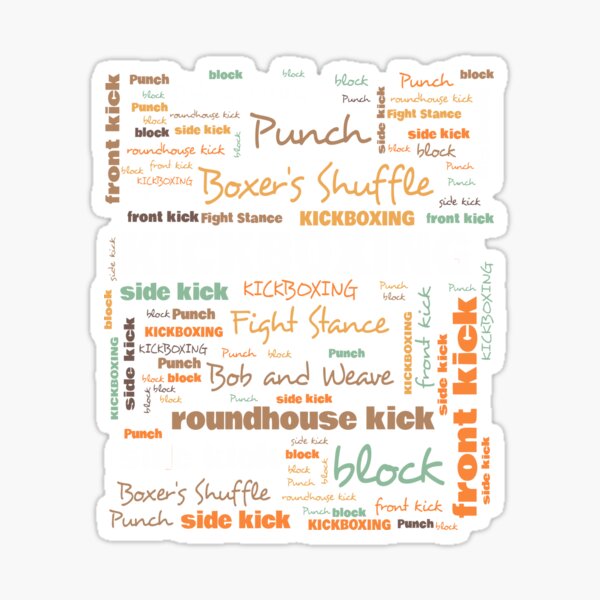 front kick
Punch block block block Punch block
Punch block Punch roundhouse kick
block roundhouse kick Fight Stance
block side kick block Punch side kick side kick
roundhouse kick block Punch
block front kick Punch
KICKBOXING Boxer's Shuffle side kick
front kick Fight Stance KICKBOXING front kick
side kick
block
side kick KICKBOXING Punch block
block Punch
KICKBOXING Fight Stance
KICKBOXING side kick
KICKBOXING Punch block Punch
Punch
block block Bob and Weave
block block side kick
KICKBOXING front kick side kick front kick Punch KICKBOXING side kick
roundhouse kick
Punch side kick
block block block
block block
Punch block
Boxer's Shuffle roundhouse kick front kick
Punch side kick block Punch KICKBOXING Punch block